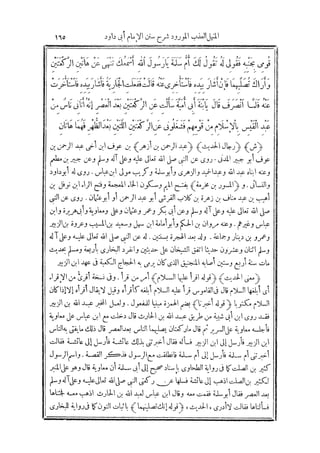 المنهل العذب المورود شرح سنن الإمام أبى داود ١٦٥
قومى بجنبه فقولى له تقول لك أم سلمة يا رسول الله أسمعك تنهى عن هاتين الركعتين
وأراك تصليهما فإن أشار بيده فاستأخرى عنه قالت ففعلت الجارية فأشار بيده فاستأخرت
عنه فلما انصرف قال يا بنت أبى أمية سألت عن الركعتين بعد العصر إنه أتانى ناس من
عبد القيس بالإسلام من قومهم فشغلونى عن الركعتين اللتين بعد الظهر فهما هاتان
(ش) (رجال الحديث) (عبد الرحمن بن أزهر) بن عوف ابن أخى عبد الرحمن بن
عوف أبو جبير المدنى. روى عن النبى صلى الله تعالى عليه وعلى آله وسلم وعن جبير بن مطعم
وعنه ابناه عبد الله وعبد الحميد والزهرى وأبو سلمة وكريب مولى ابن عباس. روى له أبو داود
والنسائى. و (المسور بن مخرمة) بفتح الميم وسكون الخاء المعجمة وفتح الراء ابن نوفل بن
أهيب بن عبد مناف بن زهرة بن كلاب القرشى أبو عبد الرحمن أو أبو عثمان. روى عن النبى
صلى الله تعالى عليه وعلى آله وسلم وعن أبى بكر وعمر وعثمان وعلى ومعاوية وأبى هريرة وابن
عباس وغيرهم. وعنه مروان بن الحكم وأبو أمامة ابن سهل وسعيد بن المسيب وعروة بن الزبير
وعمرو بن دينار وجماعة. ولد بعد الهجرة بسنتين. له عن النبى صلى الله تعالى عليه وعلى آله
وسلم اثنان وعشرون حديثا اتفق الشيخان على حديثين وانفرد البخارى بأربعة ومسلم بحديث
مات سنة أربع وستين أصابه المنجنيق الذى كان يرمى به الحجاج الكعبة فى عهد ابن الزبير
(معنى الحديث) (قوله اقرأ عليها السلام) أمر من قرأ. وفى نسخة أقرئ من الإقراء
أى أبلغها السلام قال فى القاموس قرأ عليه السلام أبلغه كأقرأه، ولا يقال أقرأه إلا إذا كان
السلام مكتوبا (قوله أخبرنا) بضم الهمزة مبنيا للمفعول. ولعل المخبر عبد الله بن الزبير
فقد روى ابن أبى شيبة من طريق عبد الله بن الحارث قال دخلت مع ابن عباس على معاوية
فأجلسه معاوية على السرير ثم قال ما ركعتان يصليهما الناس بعد العصر قال ذلك ما يفتى به الناس
ابن الزبير فأرسل إلى ابن الزبير فسأله فقال أخبرتنى بذلك عائشة فأرسل إلى عائشة فقالت
أخبرتنى أم سلمة فأرسل إلى أم سلمة فانطلقت مع الرسول فذكر القصة. واسم الرسول
كثير بن الصلت كما فى رواية الطحاوى بإسناد صحيح إلى أبى سلمة أن معاوية قال وهو على المنبر
لكثير بن الصلت اذهب إلى عائشة فسلها عن ركعتى النبى صلى الله تعالى عليه وعلى آله وسلم
بعد العصر فقال أبو سلمة فقمت معه وقال ابن عباس لعبد الله بن الحارث اذهب معه فجئناها
فسألناها فقالت لا أدرى، الحديث، (قوله أنك تصلينهما) بإثبات النون كما فى رواية للبخارى